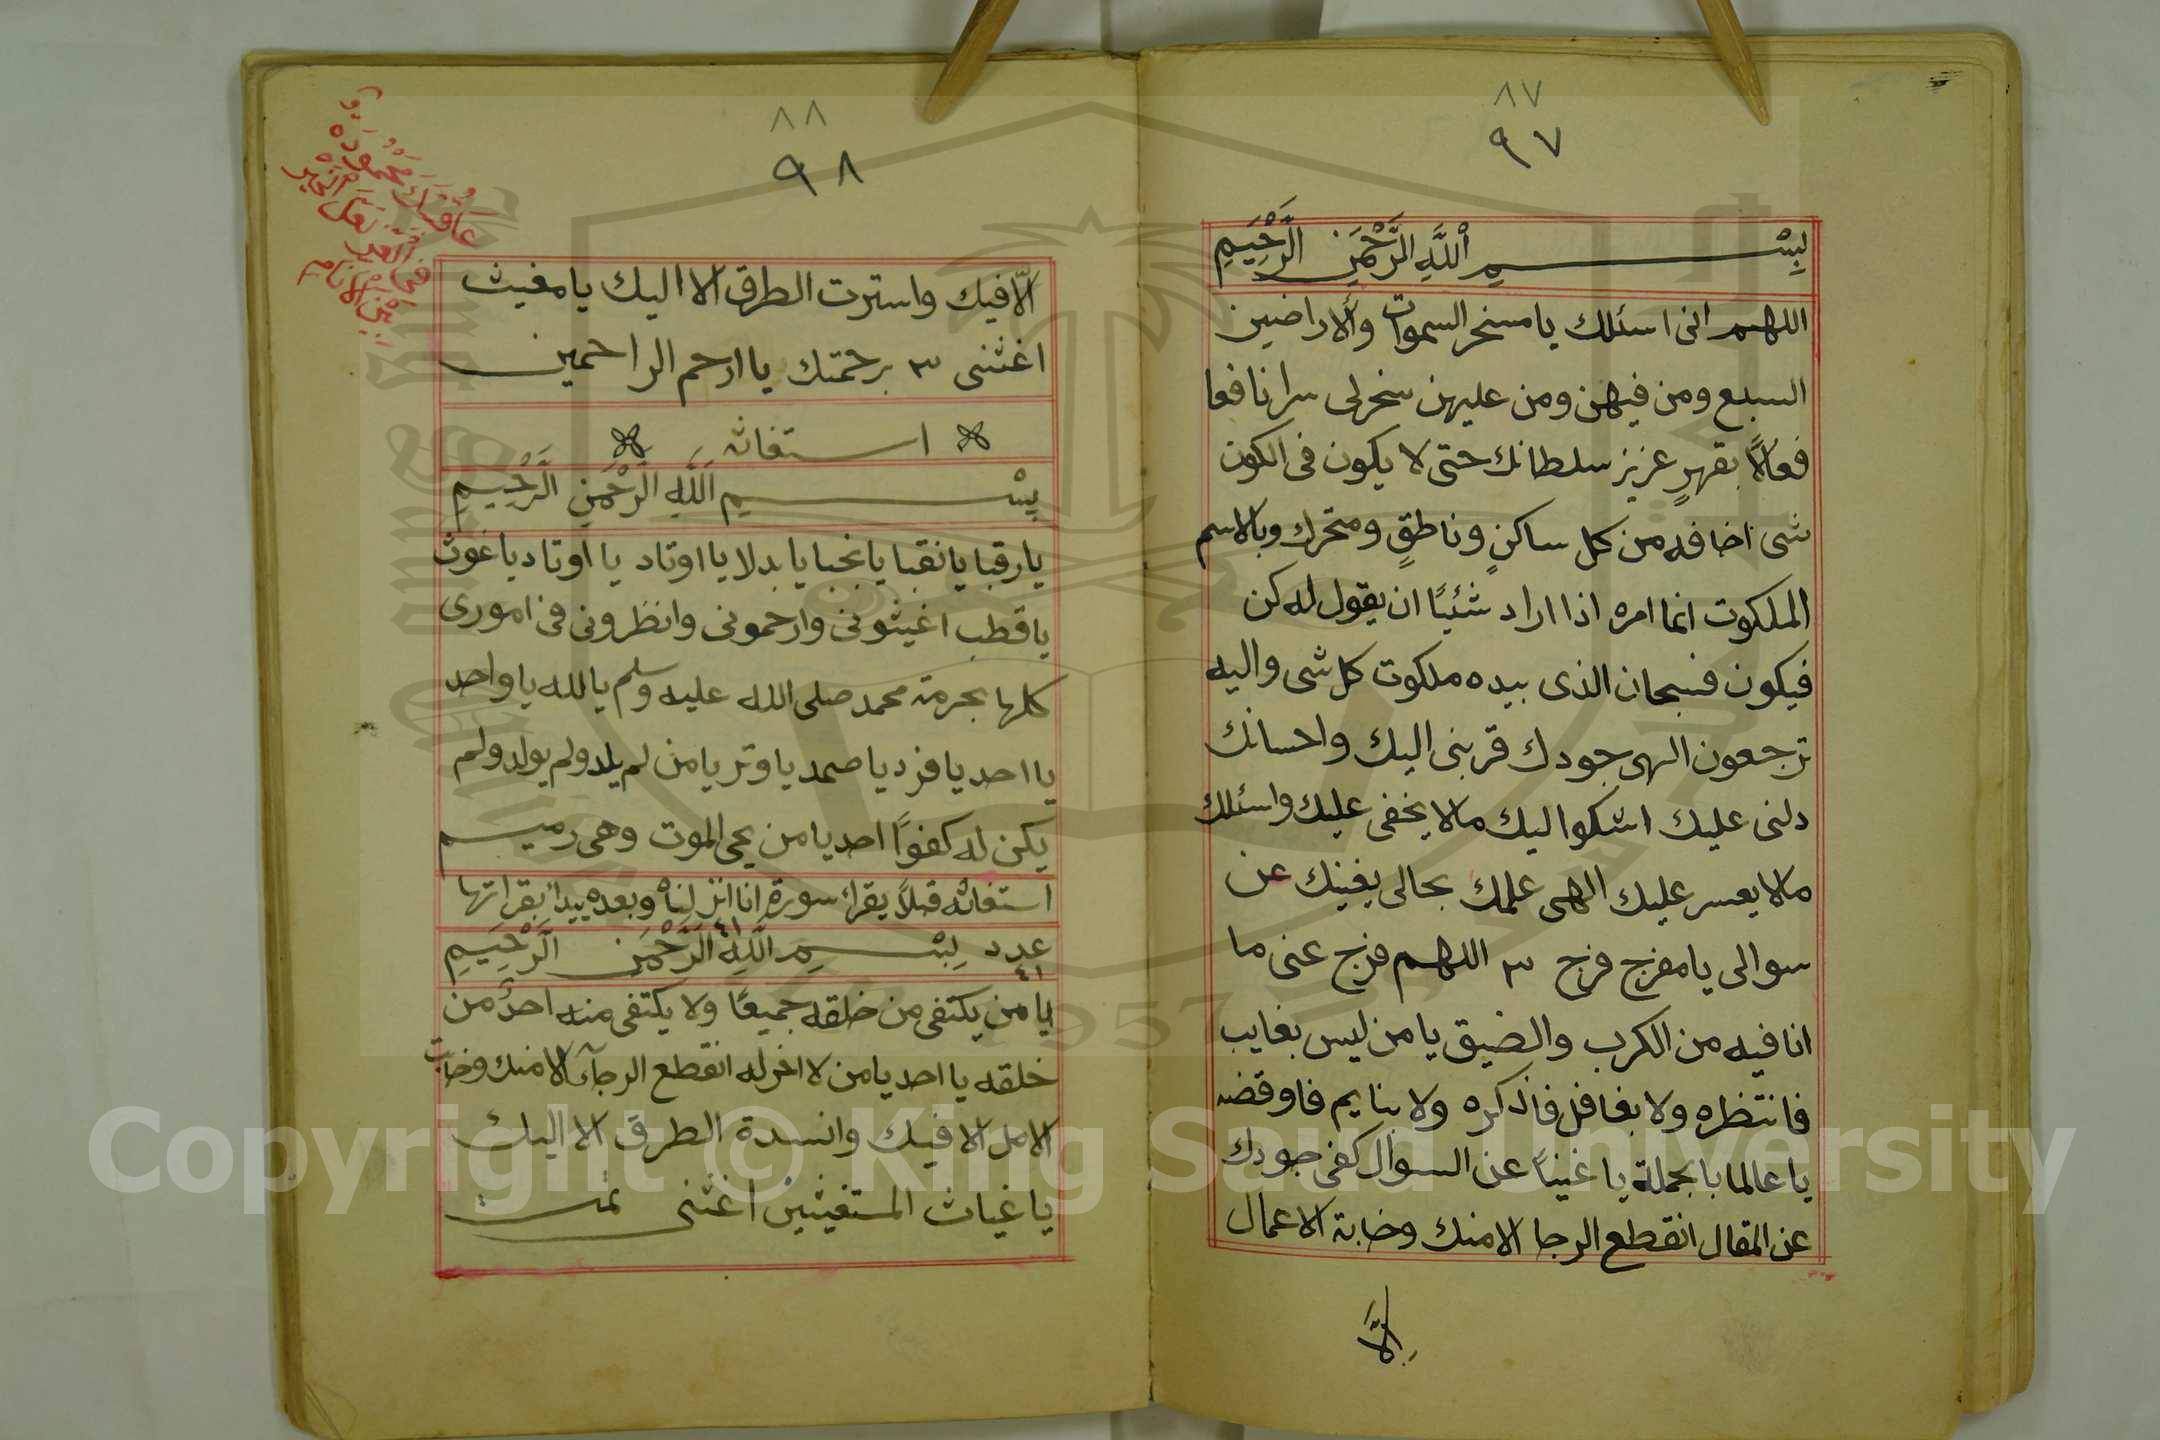 ٨٧
٩٧
بِسْمِ اللَّهِ الرَّحْمَنِ الرَّحِيَمِ
اللهم انى اسئلك يا مسخر السموات والاراضين
السبع ومن فيهن ومن عليهن سخرلى سرا نافعا
فعالًا بقهرٍ عزيز سلطانك حتى لا يكون فى الكون
شى اخافه من كل ساكنٍ وناطقٍ ومتحرك وبالاسم
الملكوت انما امره اذا اراد شئيًا ان يقول له كن
فيكون فسبحان الذى بيده ملكوت كل شى واليه
ترجعون الهى جودك قربنى اليك واحسانك
دلنى عليك اشكوا ليك مالا يخفى عليك واسئلك
مالا يعسر عليك الهى علمك بحالى يغنيك عن
سوالى يا مفرج فرج ٣ اللهم فرج عنى ما
انا فيه من الكرب والضيق يا من ليس بغايب
فانتظره ولا بغافل فاذكره ولا بنايم فاوقضه
يا عالما بالجملة يا غنيناً عن السوال كفى جودك
عن المقال انقطع الرجا الا منك وخابة الاعمال
اِلَّا
٨٨
٩٨
الّا فيك واسترت الطرق الا اليك يا مغيث
اغثنى ٣ برحمتك يا ارحم الراحمين
استغاثه
بِسْمِ اللَّهِ الرَّحْمَنِ الرَّحِيَمِ
يا رقبا يا نقبا يا نجبا يا بدلا يا اوتاد يا اوتاد يا غوث
يا قطب اغيثونى وارحمونى وانظرونى فى امورى
كلها بحرمة محمد صلى الله عليه وسلم يا لله يا واحد
يا احد يا فرد يا صمد يا وتر يا من لم يلد ولم يولد ولم
يكن له كفوًا احد يا من يحى الموت وهى رميم
استغاثه قبلًا يقراء سورة انا انزلناه وبعده يبدا بقراتها
عدد ٤١ بِسْمِ اللَّهِ الرَّحْمَنِ الرَّحِيَمِ
يا من يكتفى من خلقه جميعًا ولا يكتفى منه احدٌ من
خلقه يا احد يا من لا اخر له انقطع الرجآء الا منك وخابت
الامل الا فيك وانسدة الطرق الا اليك
يا غياث المستغيثين اغثنى تمت
Copyright © King Saud University
1957